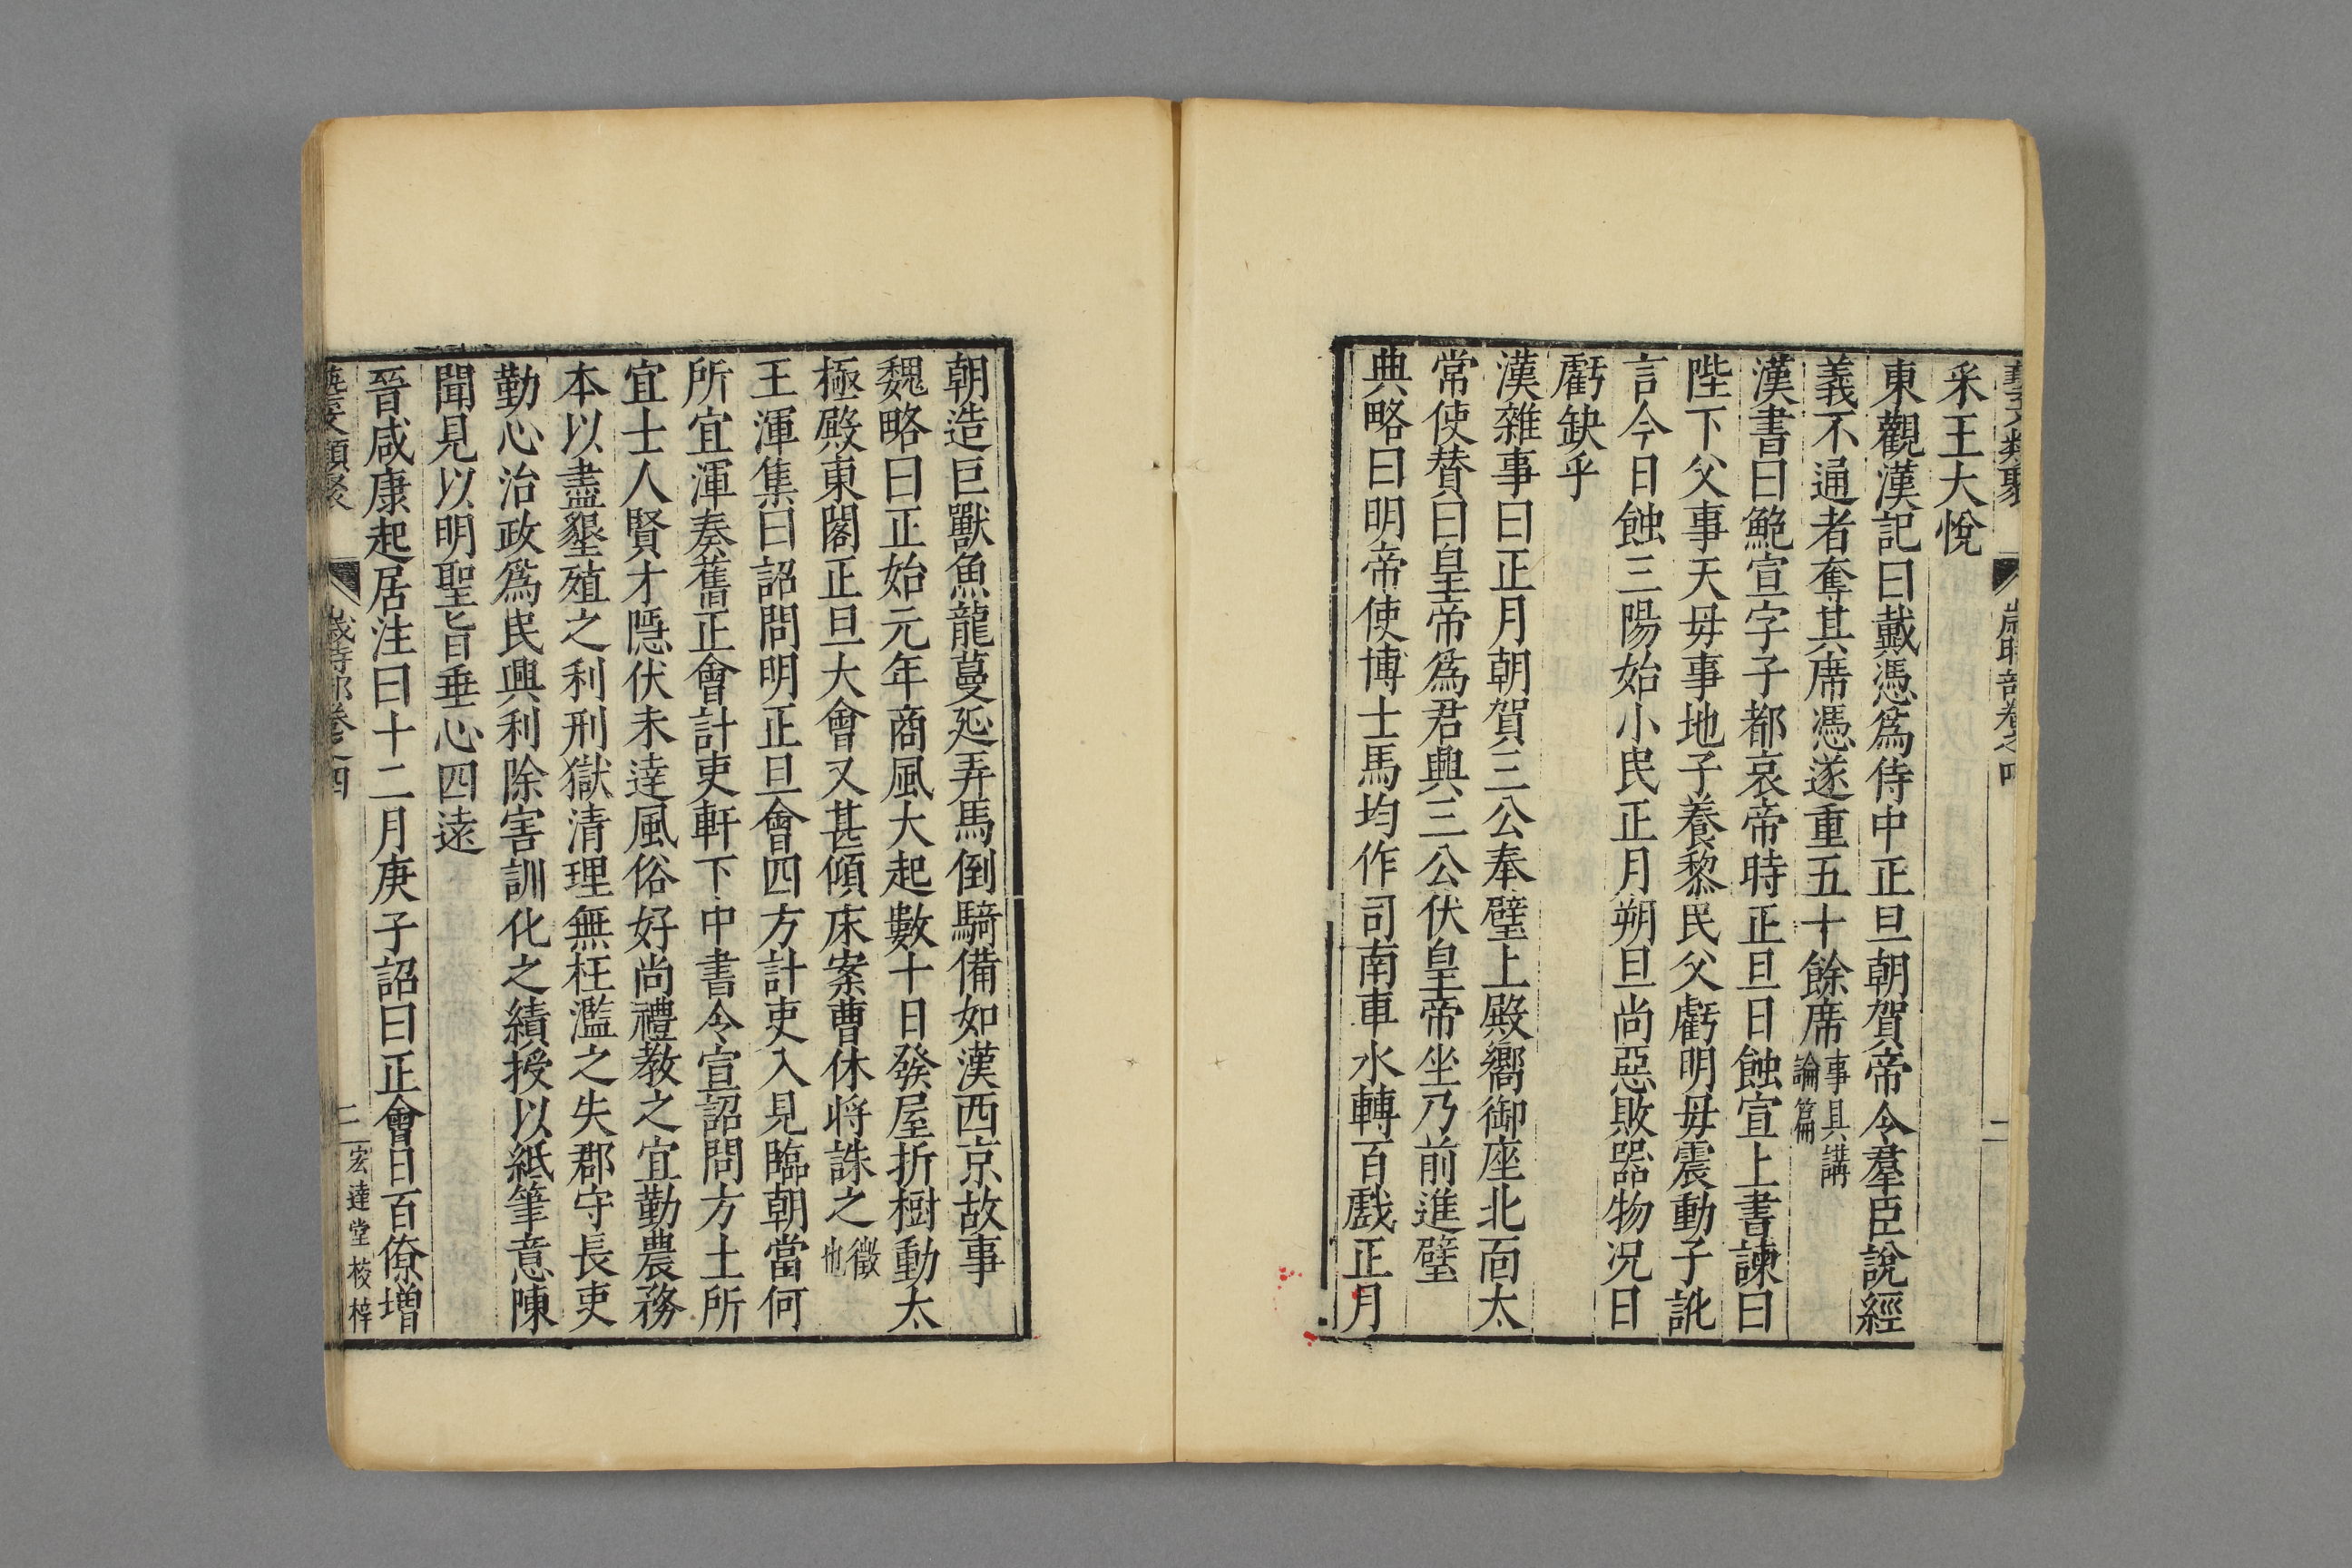 藝文類聚 歲時部卷之四 二
采王大悅
東觀漢記曰戴憑爲侍中正旦朝賀帝令羣臣說經
義不通者奪其席憑遂重五十餘席事具講論篇
漢書曰鮑宣字子都哀帝時正旦日蝕宣上書諫曰
陛下父事天毋事地子養黎民父虧明毋震動子訛
言今日蝕三陽始小民正月朔旦尚惡敗器物况日
虧缺乎
漢雜事曰正月朝賀三公奉璧上殿嚮御座北靣太
常使贊曰皇帝爲君興三公伏皇帝坐乃前進璧
典略曰明帝使博士馬均作司南車水轉百戲正月
朝造巨獸魚龍蔓延弄馬倒騎備如漢西京故事
魏略曰正始元年商風大起數十日發屋折樹動太
極殿東閣正旦大會又甚傾床案曹休將誅之徵也
王渾集曰詔問明正旦會四方計吏入見臨朝當何
所宜渾奏舊正會計吏軒下中書令宣詔問方土所
宜士人賢才隱伏未達風俗好尚禮教之宜勤農務
本以盡墾殖之利刑獄清理無枉濫之失郡守長吏
勤心治政爲民興利除害訓化之績授以紙筆意陳
聞見以明聖旨垂心四遠
晉咸康起居注曰十二月庚子詔曰正會日百僚增
藝文類聚 歲時部卷之四 二 宏達堂校梓